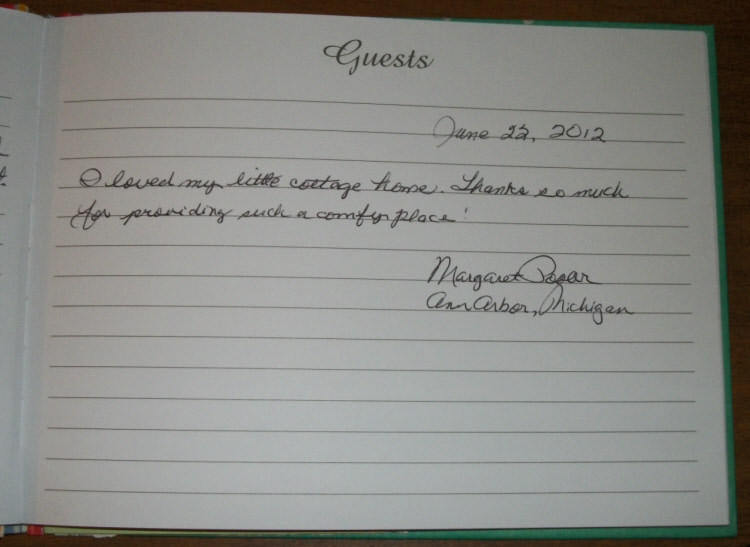 Guests
June 22, 2012
I loved my little cottage home. Thanks so much
for providing such a comfy place!
Margaret
Ann Arbor, Michigan